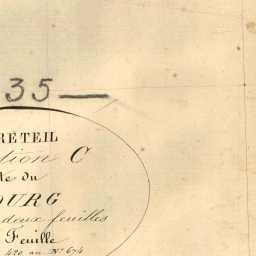 35 —
RETEIL
tion C
te du
OURG
deux feuilles
Feuille
420 au N° 674